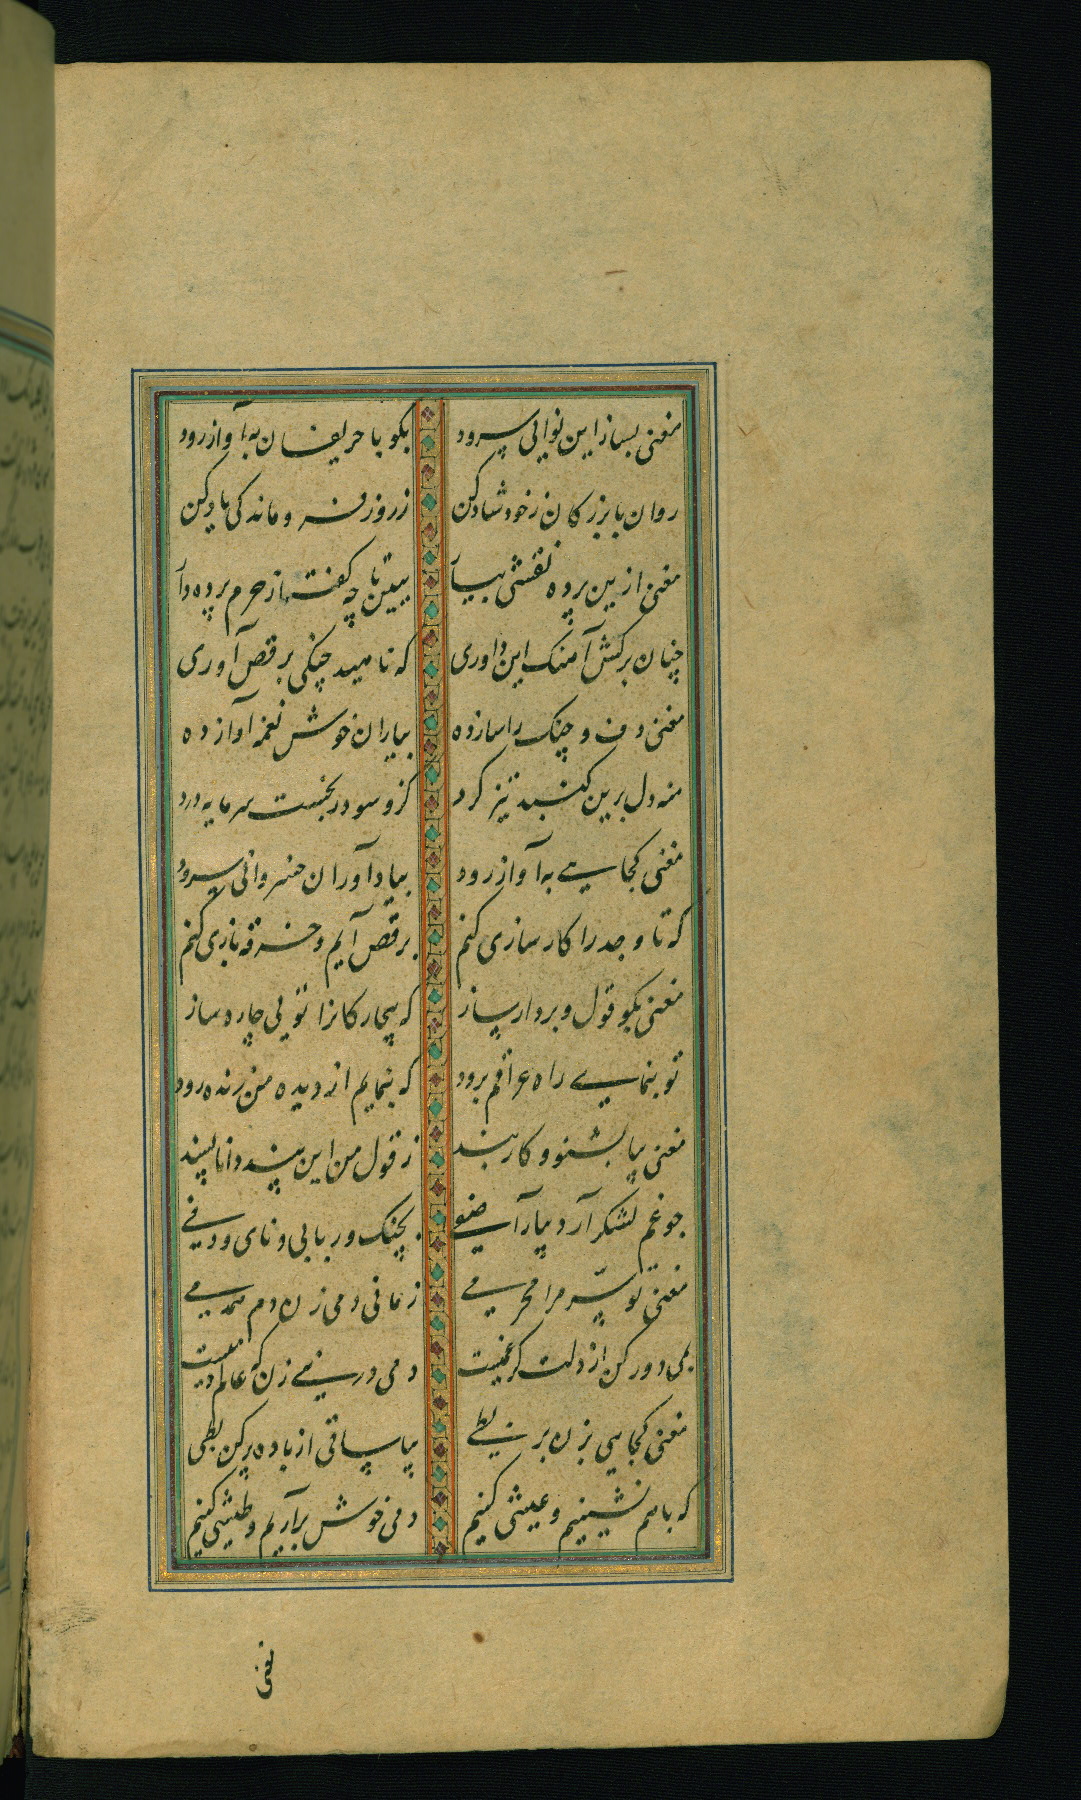 مغنی بساز این نوایی سرود بکو با حریفان به آواز رود
روان بزرکان ز خود شاد کن ز روز فرو مانده کی یاد کن
مغنی ازین پرده نقشی بیار ببین تا چه کفت از حرم پرده دار
چنان برکش آهنک این داوری که ناهید چنکی برقص آوری
مغنی دف و چنک را ساز ده بیاران خوش نغمه آواز ده
منه دل برین کنبد تیز کرد کزو سود بخست سرمایه درد
مغنی کجایی به آواز رود بیاد آور آن خسروانی سرود
که تا وجد را کارسازی کنم برقص آیم و خرقه بازی کنم
مغنی بکو قول و بردار ساز که بیچارکانرا تویی چاره ساز
تو بنمایی راه عراقم برود که بنمایم از دیده من زنده رود
مغنی بیا بشنو و کار بند ز قول من این پند دانا پسند
جو غم لشکر آرد بیارا صفی بچنک و ربابی و نای و دفی
مغنی تو سر مرا محرمی زمانی دمی زن دم همدمی
بمی دور کن از دلت کر غمیست دمی در نی زن که عالم دمیست
مغنی کجایی بزن بربطی بیا ساقی از باده پر کن بطی
که باهم نشینیم و عیشی کنیم دمی خوش برآریم و طیشی کنیم